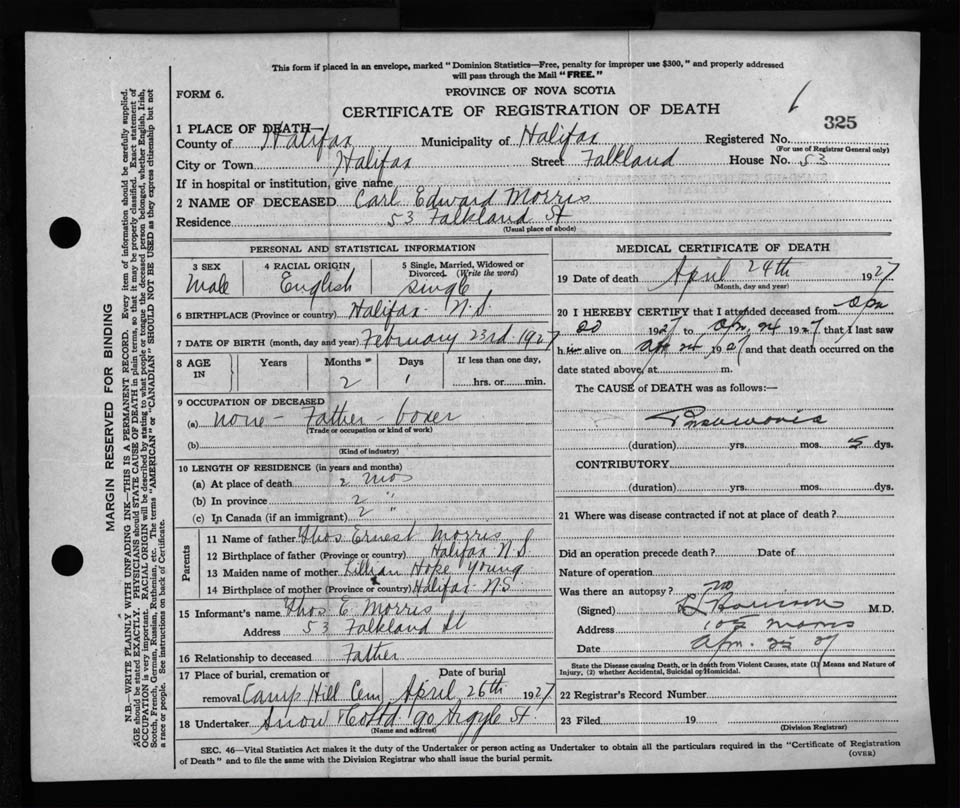 This form if placed in an envelope, marked "Dominion Statistics—Free, penalty for improper use $300," and properly addressed
will pass through the Mail "FREE."
FORM 6.
PROVINCE OF NOVA SCOTIA
CERTIFICATE OF REGISTRATION OF DEATH
325
1 PLACE OF DEATH—
County of Halifax Municipality of Halifax Registered No.
(For use of Registrar General only)
City or Town Halifax Street Falkland House No. 53
If in hospital or institution, give name
2 NAME OF DECEASED Carl Edward Morris
Residence 53 Falkland St
(Usual place of abode)
PERSONAL AND STATISTICAL INFORMATION
3 SEX 4 RACIAL ORIGIN 5 Single, Married, Widowed or Divorced. (Write the word)
Male English single
6 BIRTHPLACE (Province or country) Halifax N.S.
7 DATE OF BIRTH (month, day and year) February 23rd 1927
8 AGE IN Years Months Days If less than one day,
2 1 hrs. or min.
9 OCCUPATION OF DECEASED
(a) none - Father - boxer
(Trade or occupation or kind of work)
(b)
(Kind of industry)
10 LENGTH OF RESIDENCE (in years and months)
(a) At place of death 2 mos
(b) In province 2 "
(c) In Canada (if an immigrant) 2 "
Parents
11 Name of father Thos Ernest Morris
12 Birthplace of father (Province or country) Halifax N.S.
13 Maiden name of mother Lillian Hope Young
14 Birthplace of mother (Province or country) Halifax N.S
15 Informant's name Thos E Morris
Address 53 Falkland St
16 Relationship to deceased Father
17 Place of burial, cremation or Date of burial
removal Camp Hill Cem April 26th 1927
18 Undertaker Snow 90 Argyle St.
(Name and address)
MEDICAL CERTIFICATE OF DEATH
19 Date of death April 24th 1927
(Month, day and year)
20 I HEREBY CERTIFY that I attended deceased from Apr
20 1927 to Apr 24 1927 that I last saw
h alive on Apr 24 1927 and that death occurred on the
date stated above, at m.
The CAUSE of DEATH was as follows:—
Pneumonia
(duration) yrs. mos. 5 dys.
CONTRIBUTORY
(duration) yrs. mos. dys.
21 Where was disease contracted if not at place of death?
Did an operation precede death? Date of
Nature of operation
Was there an autopsy? no
(Signed) M.D.
Address Morris
Date Apr. 25 27
State the Disease causing Death, or in death from Violent Causes, state (1) Means and Nature of
Injury, (2) whether Accidental, Suicidal or Homicidal.
22 Registrar's Record Number
23 Filed 19
(Division Registrar)
SEC. 46—Vital Statistics Act makes it the duty of the Undertaker or person acting as Undertaker to obtain all the particulars required in the "Certificate of Registration
of Death" and to file the same with the Division Registrar who shall issue the burial permit. (OVER)
MARGIN RESERVED FOR BINDING
N.B.—WRITE PLAINLY WITH UNFADING INK—THIS IS A PERMANENT RECORD. Every item of information should be carefully supplied.
AGE should be stated EXACTLY. PHYSICIANS should STATE CAUSE OF DEATH in plain terms, so that it may be properly classified. Exact statement of
OCCUPATION is very important. RACIAL ORIGIN will be described by stating to what people or tongue the deceased person belonged, whether English, Irish,
Scotch, French, German, Russian, Ruthenian, etc. The terms "AMERICAN" or "CANADIAN" SHOULD NOT BE USED as they express citizenship but not
a race or people. See instructions on back of Certificate.